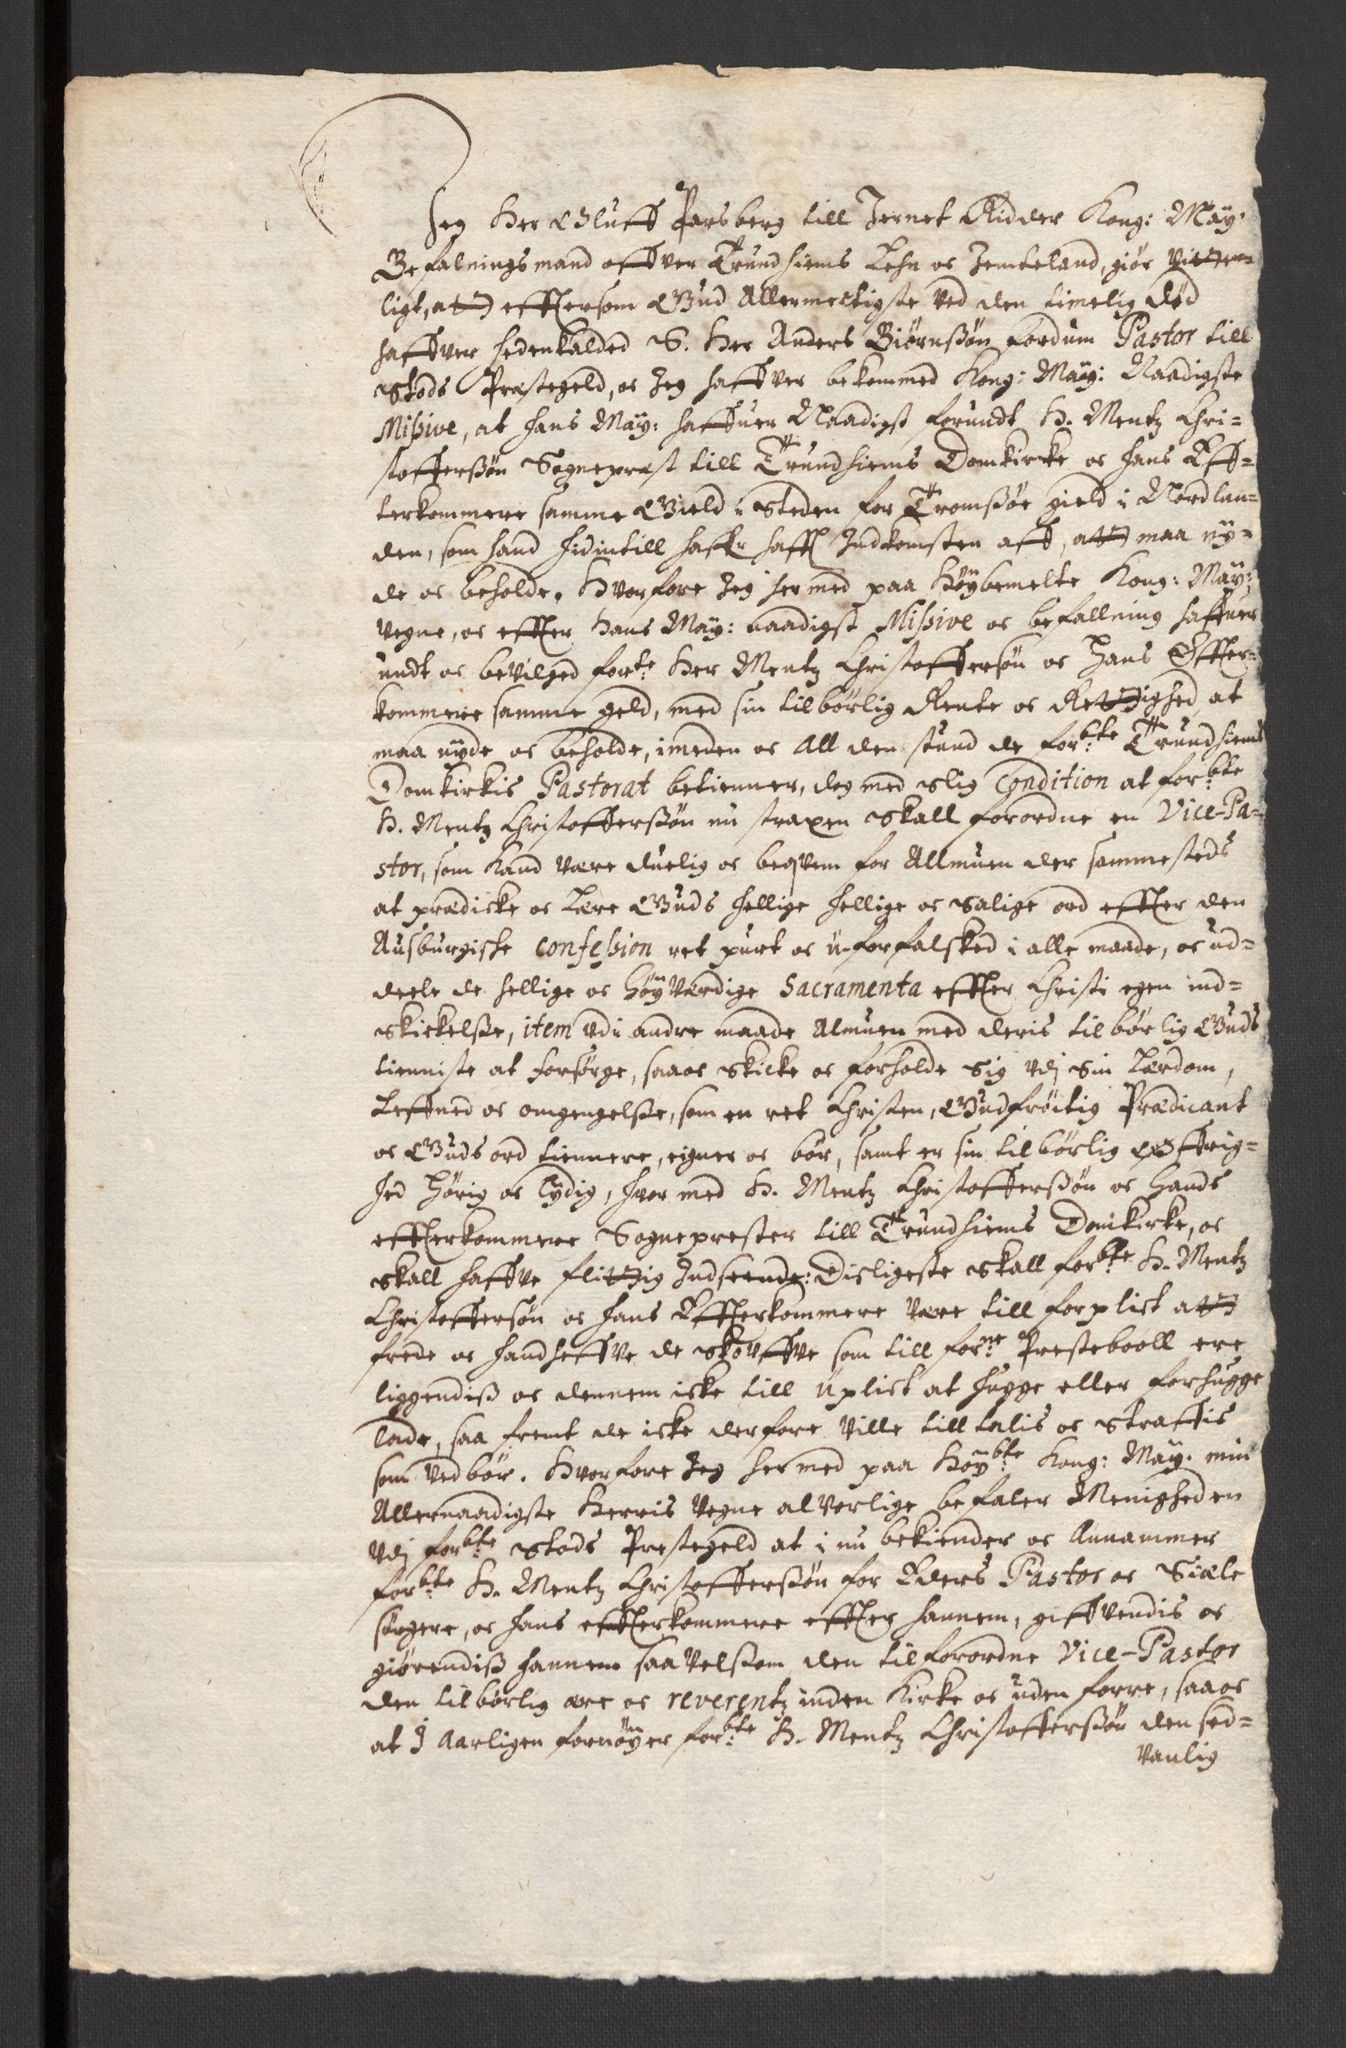 Jeg Her Oluff Parsberg till Jernet Ridder Kong: May:
Befalningsmand offver Trundhiems Lehn oc Jemteland, giör vitter-
ligt, att effttersom Gud Allermectigste ved den timelig död
haffver hedenkalded S. Her Anders Biörnßön fordum Pastor till
Stods Præstegeld, oc Jeg haffver bekommed Kong: May: Naadigste
Missive, at hans May: haffuer Naadigst forundt H. Mentz Chri-
stofferßön Sognepræst till Trundhiems Domkircke oc hans Eff-
terkommere samme Gield i steden for Tromsßöe gield i Nordlan-
den, som hand hidintill haffr hafft Indkomsten aff, att maa ny-
de oc beholde. Hvorfore Jeg hermed paa Höybemelte Kong: May:
vegne, oc effter Hans May: naadigst Missive oc befallning haffuer
undt oc bevilged forte: Her Mentz Christoffersön oc Hans Effter-
kommere samme geld, med sin tilbörlig Rente oc Rettighed at
maa nyde oc beholde, imeden oc all den stund de forbte: Trundhiems
Domkirkis Pastorat betienner, dog med slig Condition at forbte:
H. Mentz Christofferßön nu straxen skall forordne en Vice-Pa-
stor, som kand være duelig oc beqvem for Allmuen der sammesteds
at prædicke oc Lære Guds hellige hellige oc salige ord effter den
Ausburgiske Confession ret purt oc u-forfalsked i alle maade, oc ud-
deele de hellige oc Höyværdige Sacramenta effter Christi egen ind-
skickelße, item vdi andre maade Almuen med deris tilbörlig Guds
tienniste at forsörge, saaoc skicke oc forholde sig vdi sin Lærdom,
Leffned oc omgengelße, som en ret Christen, Gudfröctig Prædicant
oc Guds ord tiennere, eigner oc bör, samt er sin tilbörlig Öffrig-
hed hörig oc lydig, hvor med H. Mentz Christofferßön oc Hands
effterkommere Sogneprester till Trundhiems Domkirke, oc
skall haffve flittig Indseende: Disligeste skall forbte: H. Mentz
Christoffersön oc hans Effterkommere være till forplict att
frede oc handheffve de Skovffve som till forne: Prestebooll ere
liggendiß oc dennem icke till uplict at hugge eller forhugge
lade, saa fremt de icke derfore ville till talis oc straffis
som vedbör. Hvorfore Jeg hermed paa Höybte: Kong: May: min
Allernaadigste Herris vegne alvorlige befaler Menigheden
vdi forbte: Stods Prestegeld at i nu bekiender oc Annammer
forbte: H. Mentz Christofferßön for Eders Pastor oc Siæle
sörgere, oc hans effterkommere effter hannem, giffvendis oc
giörendiß hannem saavelsom den tilforordne Vice-Pastor
den tilbörlig ære oc reverentz inden kirke oc uden forre, saaoc
at I Aarligen fornöyer forbte: H. Mentz Christofferßön den sed-
vanlig